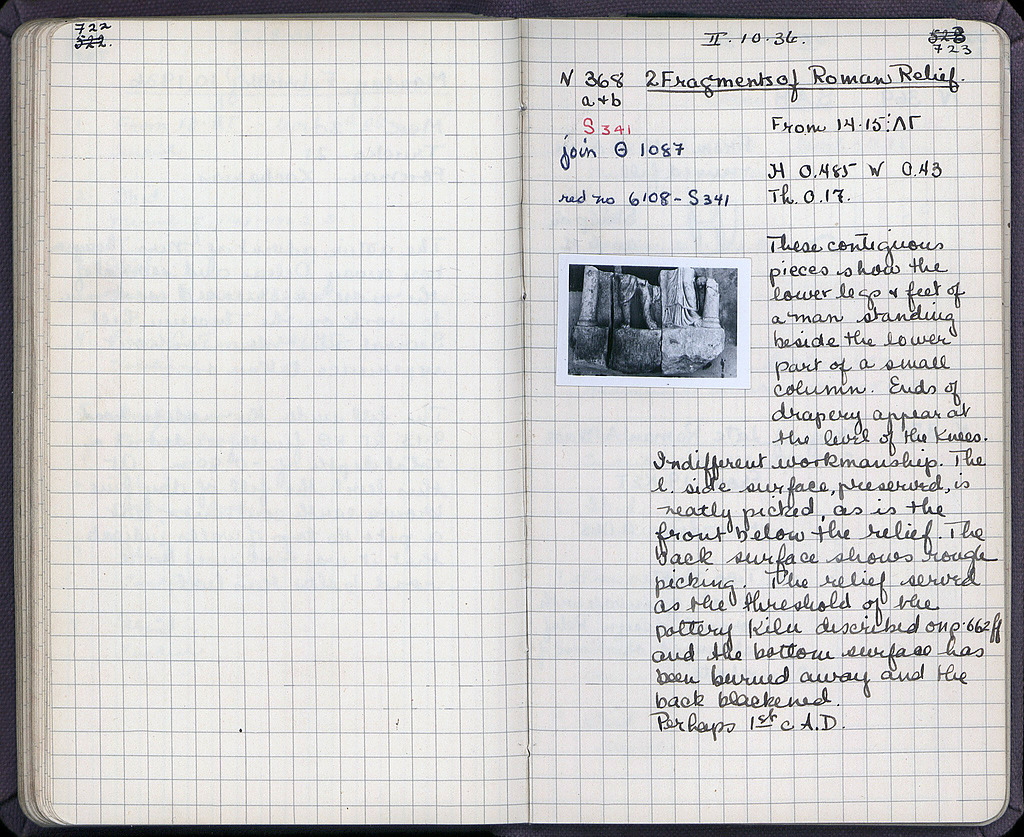 722
522.
II. 10. 36.
523
723
N 368 2 Fragments of Roman Relief.
a + b
S 341
From 14-15:ΛΓ
join Θ 1087
H 0.485 W 0.43
red no 6108 - S 341
Th. 0.17.
These contiguous
pieces show the
lower legs & feet of
a man standing
beside the lower
part of a small
column. Ends of
drapery appear at
the level of the knees.
Indifferent workmanship. The
l. side surface, preserved, is
neatly picked, as is the
front below the relief. The
back surface shows rough
picking. The relief served
as the threshold of the
pottery kiln described on p. 662 ff
and the bottom surface has
been burned away and the
back blackened.
Perhaps 1st c A.D.